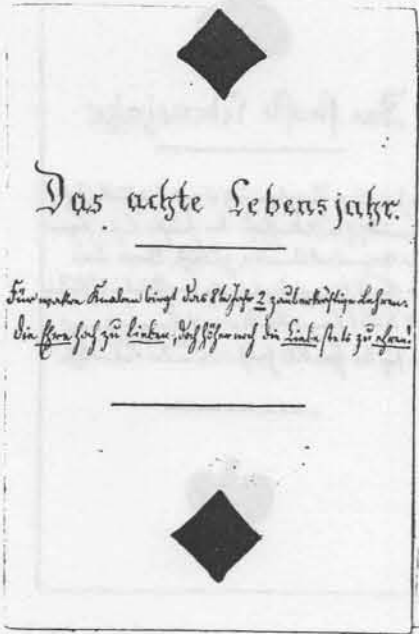 Das achte Lebensjahr.
Für wackre Knaben birgt das 8te Jahr 2 zauberkräftige Lehren:
die Ehre hoch zu lieben, doch höher noch die Liebe stets zu ehren!